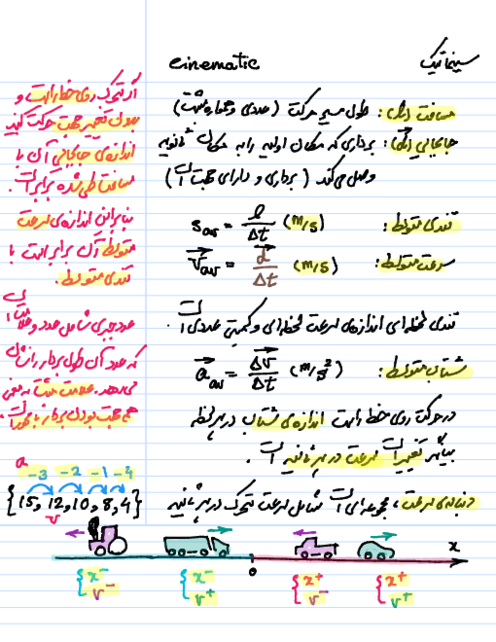 سینماتیک
cinematic
مسافت (l): طول مسیر حرکت (عددی و همواره مثبت)
جابجایی (d): برداری که مکان اولیه را به مکان ثانویه
وصل می‌کند (برداری و دارای جهت است)
تندی متوسط: s_av = l/Δt (m/s)
سرعت متوسط: v_av = d/Δt (m/s)
تندی لحظه‌ای اندازه‌ی سرعت لحظه‌ای و کمیتی عددی است.
شتاب متوسط: a_av = Δv/Δt (m/s²)
در حرکت روی خط راست اندازه‌ی شتاب در هر لحظه
بیانگر تغییرات سرعت در هر ثانیه است.
دنباله‌ی سرعت، مجموعه‌ای است شامل سرعت متحرک در هر ثانیه
اگر متحرک روی خط راست و
بدون تغییر جهت حرکت کند
اندازه‌ی جابجایی آن با
مسافت طی شده برابر است.
بنابراین اندازه‌ی سرعت
متوسط آن برابر است با
تندی متوسط.
عدد جبری شامل عدد و علامت است
که عدد آن طول بردار را نشان
می‌دهد. علامت مثبت به معنی
هم جهت بودن بردار با محور است.
a
-3 -2 -1 -4
{15, 12, 10, 8, 4}
v
x
0
{x⁻ v⁻
{x⁻ v⁺
{x⁺ v⁻
{x⁺ v⁺